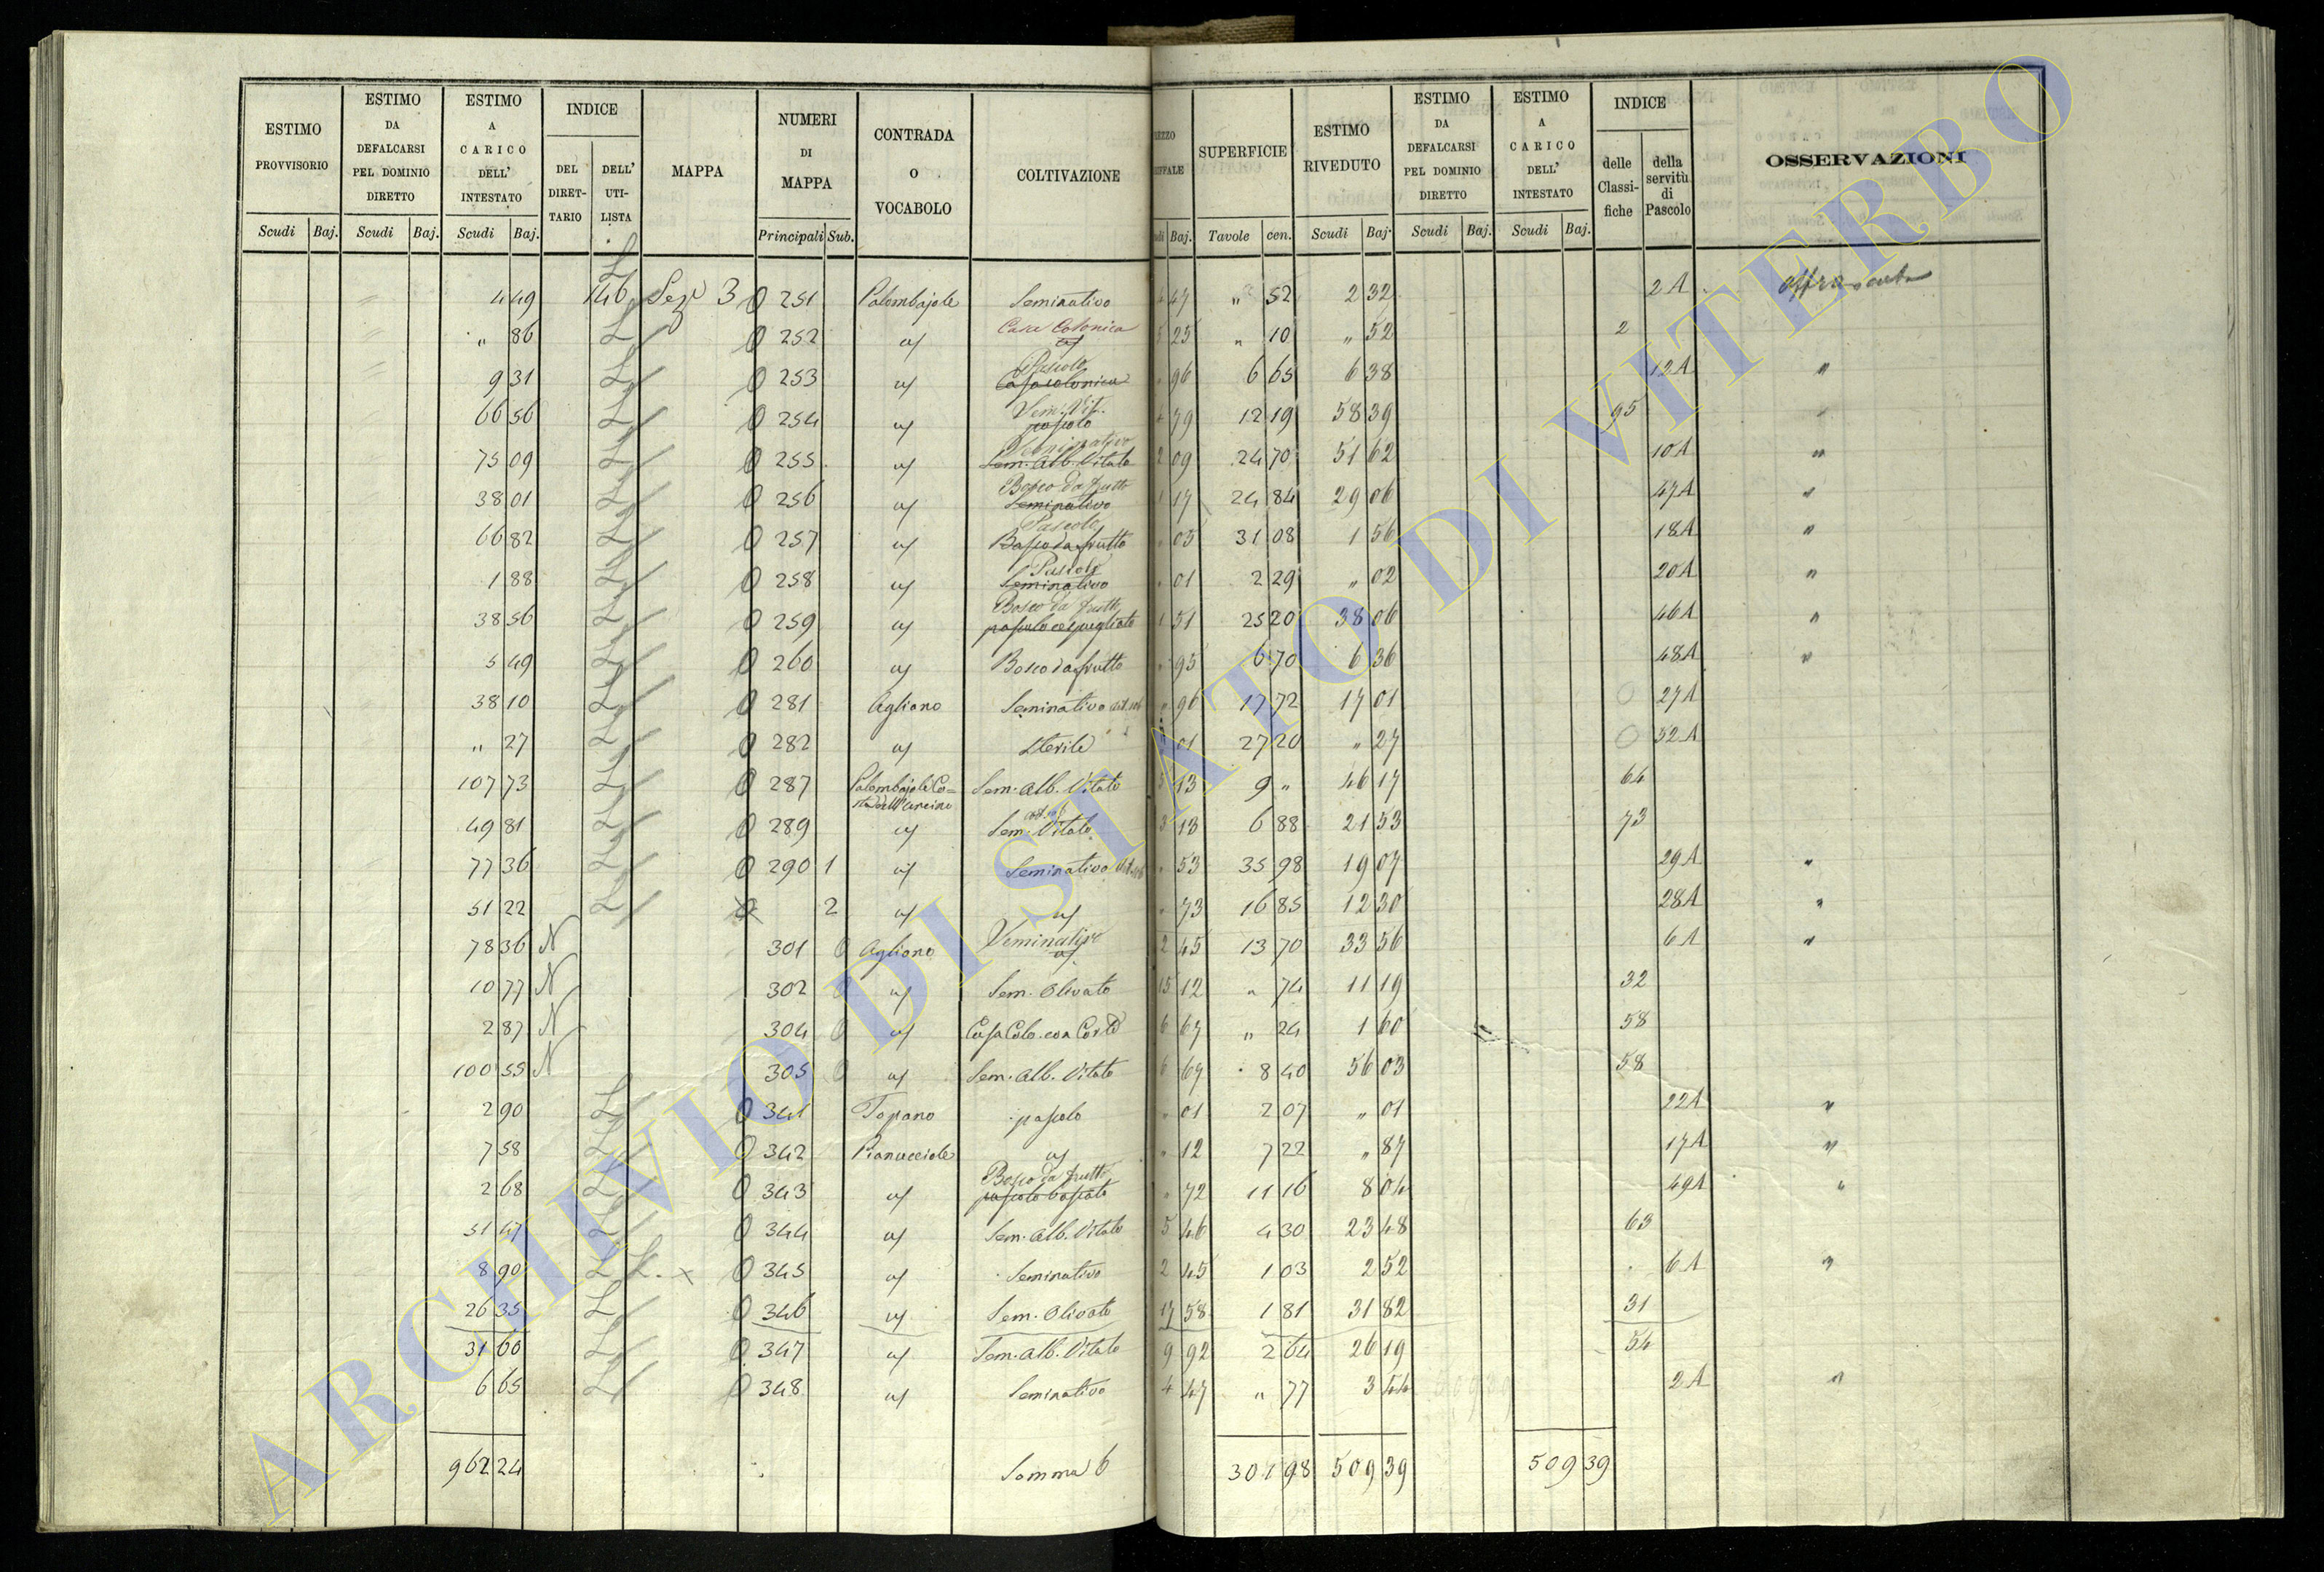 ESTIMO PROVVISORIO
ESTIMO DA DEFALCARSI PEL DOMINIO DIRETTO
ESTIMO A CARICO DELL' INTESTATO
INDICE
DEL DIRET- TARIO
DELL' UTI- LISTA
MAPPA
NUMERI DI MAPPA
CONTRADA O VOCABOLO
COLTIVAZIONE
SUPERFICIE
ESTIMO RIVEDUTO
ESTIMO DA DEFALCARSI PEL DOMINIO DIRETTO
ESTIMO A CARICO DELL' INTESTATO
INDICE
delle Classi- fiche
della servitù di Pascolo
OSSERVAZIONI
Scudi Baj. Scudi Baj. Scudi Baj. Principali Sub. Baj. Tavole cen. Scudi Baj. Scudi Baj. Scudi Baj.
4 49 146 Sez 3 0 251 Palombajole Seminativo 47 " 52 2 32 2 A
" 86 L 0 252 Casa Colonica 25 " 10 " 52 2
9 31 L 0 253 Pascolo Casa colonica 96 6 65 6 38 12 A "
66 56 L 0 254 Sem. Vit. pascolo 79 12 19 58 39 95
75 09 L 0 255 Seminativo Sem. Alb. Vitato 2 09 24 70 51 62 10 A "
38 01 L 0 256 Bosco da frutto Seminativo 1 17 24 84 29 06 47 A "
66 82 L 0 257 Pascolo Bosco da frutto 05 31 08 1 56 18 A "
1 88 L 0 258 Pascolo Seminativo 01 2 29 " 02 20 A "
38 56 L 0 259 Bosco da frutto pascolo cespugliato 1 51 25 20 38 06 46 A "
5 49 L 0 260 Bosco da frutto 95 6 70 6 36 48 A "
38 10 L 0 281 Agliano Seminativo 96 17 72 17 01 27 A
" 27 L 0 282 Sterile 01 27 20 " 27 52 A
107 73 L 0 287 Palombajole Co= Sem. Alb. Vitato 5 13 9 " 46 17 64
49 81 L 0 289 Sem. Vitato 3 13 6 88 21 53 73
77 36 L 0 290 1 Seminativo 53 35 98 19 07 29 A "
51 22 L 2 73 16 85 12 30 28 A "
78 36 N 301 0 Agliano Seminativo 2 45 13 70 33 56 6 A "
10 77 N 302 0 Sem. Olivato 15 12 " 74 11 19 32
2 87 N 304 0 Casa Colo. con Corte 6 67 " 24 1 60 58
100 55 N 305 0 Sem. Alb. Vitato 6 67 8 40 56 03 58
2 90 L 0 341 Topano pascolo 01 2 07 " 01 22 A "
7 58 L 0 342 Pianucciole 12 7 22 " 87 17 A "
2 68 L 0 343 Bosco da frutto pascolo boscato 72 11 16 8 04 49 A "
51 47 L 0 344 Sem. Alb. Vitato 5 46 4 30 23 48 63
8 90 L L. x 0 345 Seminativo 2 45 1 03 2 52 6 A "
26 35 L 0 346 Sem. Olivato 17 58 1 81 31 82 31
31 60 L 0 347 Sem. Alb. Vitato 9 92 2 64 26 19 54
6 65 L 0 348 Seminativo 4 47 " 77 3 44 2 A "
962 24 Somma 6 301 98 509 39 509 39
ARCHIVIO DI STATO DI VITERBO